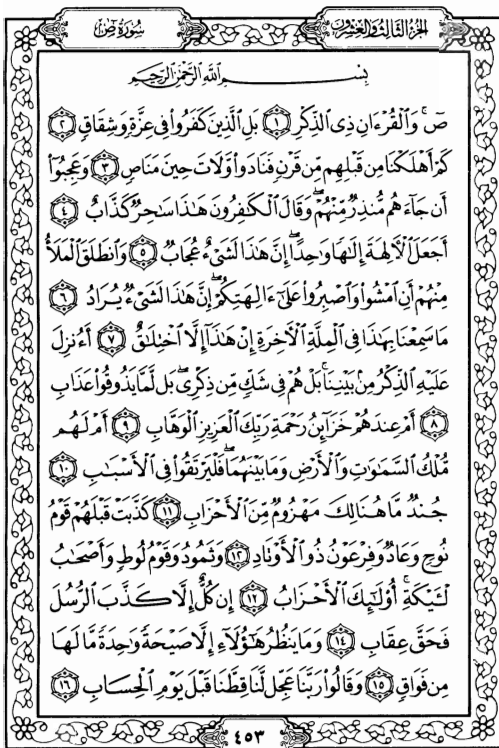 الجُزْءُ الثَّالِثُ وَالعِشْرُونَ
سُورَةُ صٓ
بِسْمِ اللَّهِ الرَّحْمَٰنِ الرَّحِيمِ
صٓ ۚ وَٱلْقُرْءَانِ ذِى ٱلذِّكْرِ ١ بَلِ ٱلَّذِينَ كَفَرُوا۟ فِى عِزَّةٍ وَشِقَاقٍ ٢
كَمْ أَهْلَكْنَا مِن قَبْلِهِم مِّن قَرْنٍ فَنَادَوا۟ وَّلَاتَ حِينَ مَنَاصٍ ٣ وَعَجِبُوٓا۟
أَن جَآءَهُم مُّنذِرٌ مِّنْهُمْ ۖ وَقَالَ ٱلْكَٰفِرُونَ هَٰذَا سَٰحِرٌ كَذَّابٌ ٤
أَجَعَلَ ٱلْءَالِهَةَ إِلَٰهًا وَٰحِدًا ۖ إِنَّ هَٰذَا لَشَىْءٌ عُجَابٌ ٥ وَٱنطَلَقَ ٱلْمَلَأُ
مِنْهُمْ أَنِ ٱمْشُوا۟ وَٱصْبِرُوا۟ عَلَىٰٓ ءَالِهَتِكُمْ ۖ إِنَّ هَٰذَا لَشَىْءٌ يُرَادُ ٦
مَا سَمِعْنَا بِهَٰذَا فِى ٱلْمِلَّةِ ٱلْءَاخِرَةِ إِنْ هَٰذَآ إِلَّا ٱخْتِلَٰقٌ ٧ أَءُنزِلَ
عَلَيْهِ ٱلذِّكْرُ مِنۢ بَيْنِنَا ۚ بَلْ هُمْ فِى شَكٍّ مِّن ذِكْرِى ۖ بَل لَّمَّا يَذُوقُوا۟ عَذَابِ
٨ أَمْ عِندَهُمْ خَزَآئِنُ رَحْمَةِ رَبِّكَ ٱلْعَزِيزِ ٱلْوَهَّابِ ٩ أَمْ لَهُم
مُّلْكُ ٱلسَّمَٰوَٰتِ وَٱلْأَرْضِ وَمَا بَيْنَهُمَا ۖ فَلْيَرْتَقُوا۟ فِى ٱلْأَسْبَٰبِ ١٠
جُندٌ مَّا هُنَالِكَ مَهْزُومٌ مِّنَ ٱلْأَحْزَابِ ١١ كَذَّبَتْ قَبْلَهُمْ قَوْمُ
نُوحٍ وَعَادٌ وَفِرْعَوْنُ ذُو ٱلْأَوْتَادِ ١٢ وَثَمُودُ وَقَوْمُ لُوطٍ وَأَصْحَٰبُ
لْـَٔيْكَةِ ۚ أُو۟لَٰٓئِكَ ٱلْأَحْزَابُ ١٣ إِن كُلٌّ إِلَّا كَذَّبَ ٱلرُّسُلَ
فَحَقَّ عِقَابِ ١٤ وَمَا يَنظُرُ هَٰٓؤُلَآءِ إِلَّا صَيْحَةً وَٰحِدَةً مَّا لَهَا
مِن فَوَاقٍ ١٥ وَقَالُوا۟ رَبَّنَا عَجِّل لَّنَا قِطَّنَا قَبْلَ يَوْمِ ٱلْحِسَابِ ١٦
٤٥٣